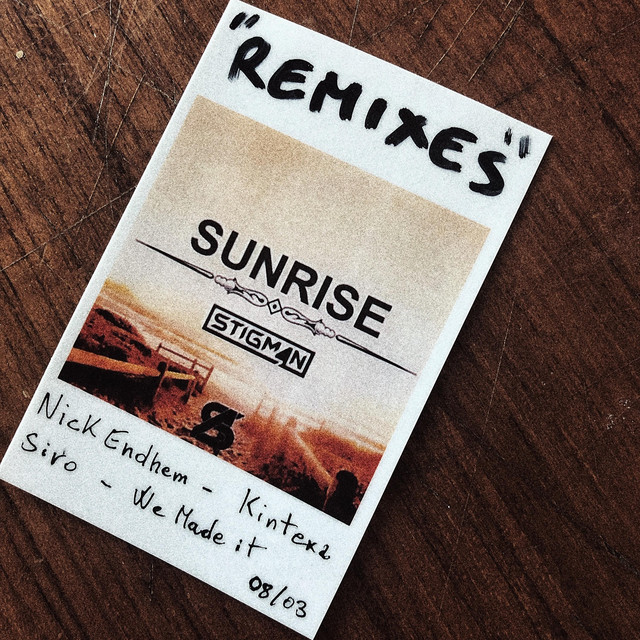 "REMIXES"
SUNRISE
STIGM4N
Nick Endhem - Kintexz
Siro - We Made it
08/03